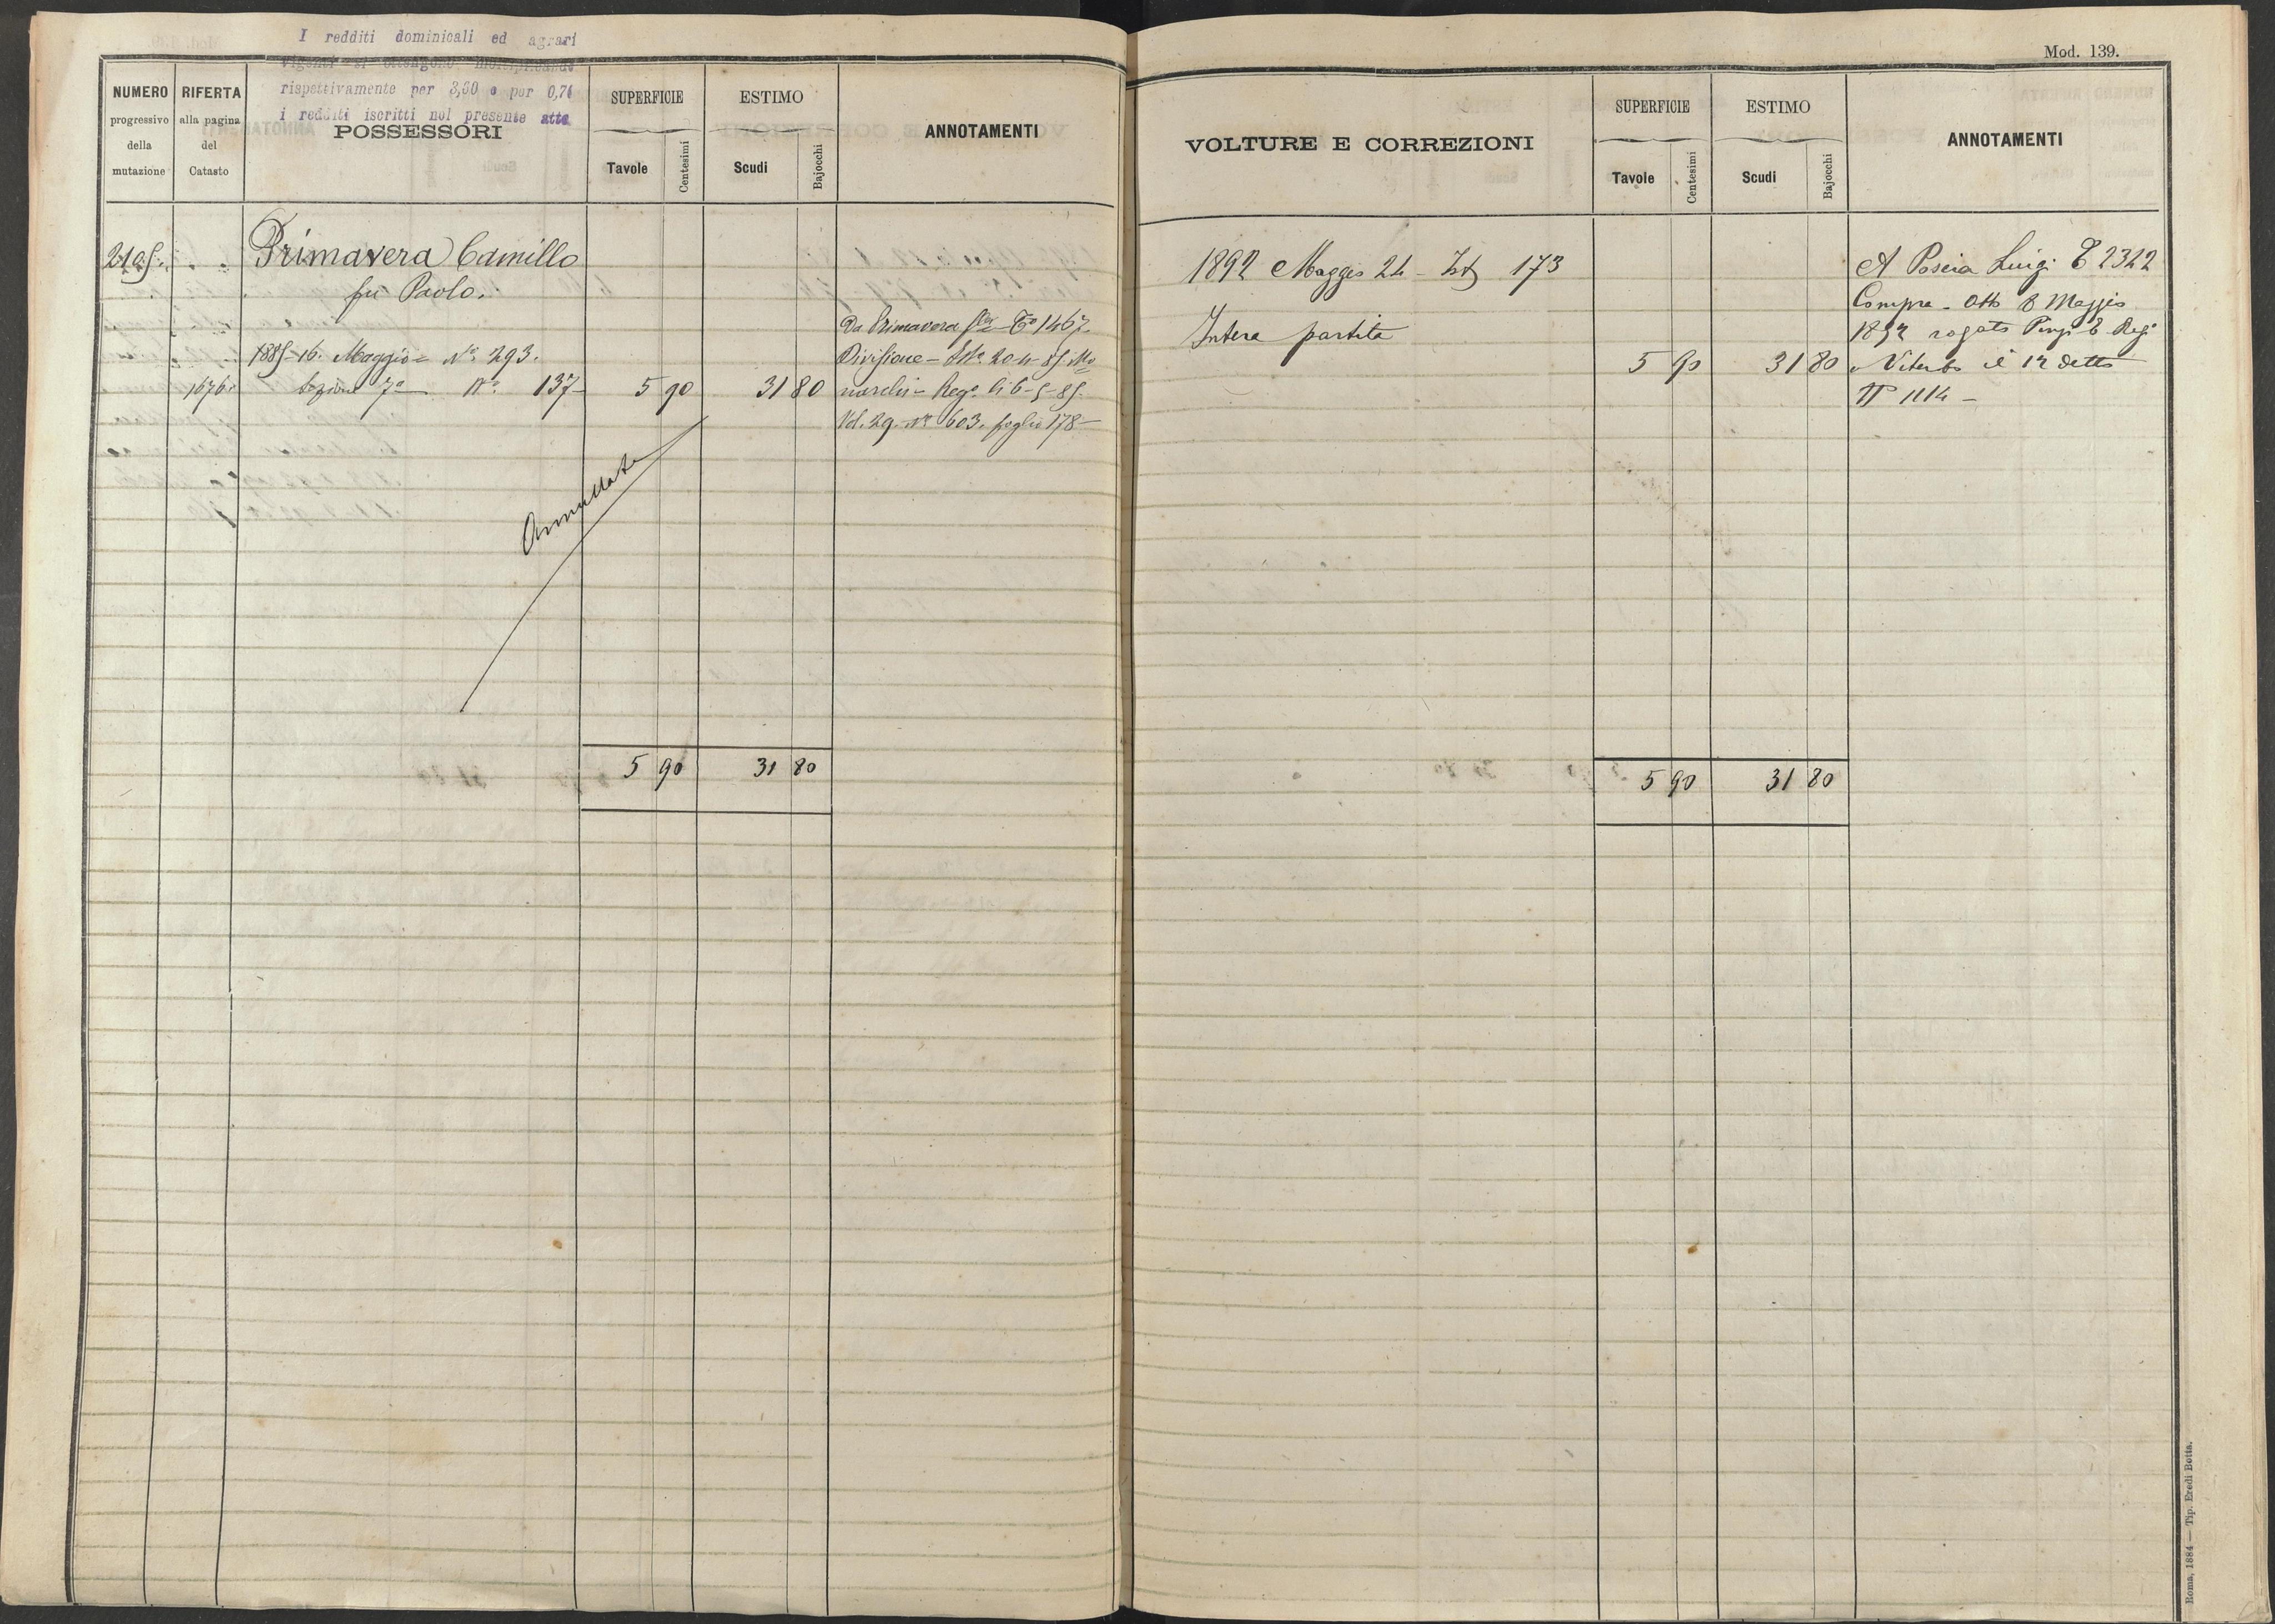 I redditi dominicali ed agrari
vigenti si ottengono moltiplicando
rispettivamente per 3,60 e per 0,74
i redditi iscritti nel presente atto
NUMERO
progressivo
della
mutazione
RIFERTA
alla pagina
del
Catasto
POSSESSORI
SUPERFICIE
Tavole
Centesimi
ESTIMO
Scudi
Bajocchi
ANNOTAMENTI
2105. Primavera Camillo
fu Paolo.
1885-16. Maggio = N.° 293.
1676. Sezione 7a N.° 137 5 90 31 80
Da Primavera T.° 1467
Divisione 20-4-85. Mo
narchi - Reg.° li 6-5-85.
Vol. 29. N.° 603. foglio 178
Annullata
5 90 31 80
Mod. 139.
VOLTURE E CORREZIONI
SUPERFICIE
Tavole
Centesimi
ESTIMO
Scudi
Bajocchi
ANNOTAMENTI
1892 Maggio 24 - 173
Intera partita
5 90 31 80
A Poscia Luigi T 2322
Compra - Atto 8 Maggio
1892 rogato E Reg.°
a Viterbo il 12 detto
N° 1114 -
5 90 31 80
Roma, 1884 — Tip. Eredi Botta.